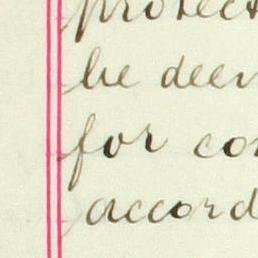 protect
be deem
for con
accord